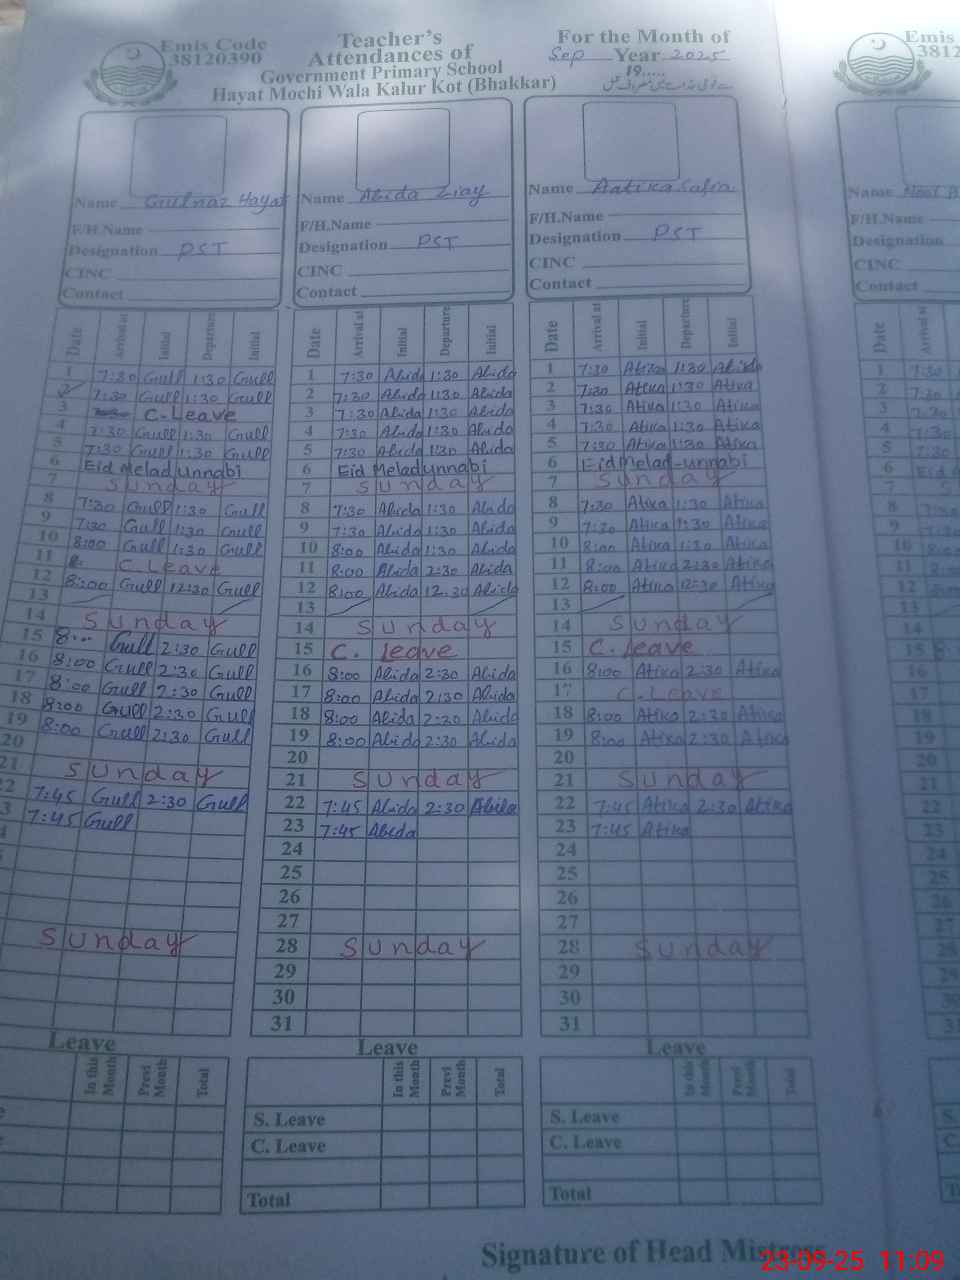 Emis Code
38120390
Teacher's
Attendances of
Government Primary School
Hayat Mochi Wala Kalur Kot (Bhakkar)
For the Month of
Sep Year 2025
19.....
Emis
3812
Name Gulnaz Hayat
F/H.Name
Designation PST
CINC
Contact
Name Abida Ziay
F/H.Name
Designation PST
CINC
Contact
Name Aatika Safia
F/H.Name
Designation PST
CINC
Contact
Name
F/H.Name
Designation
CINC
Contact
Date Arrival at Initial Departure Initial
1 7:30 Gull 1:30 Gull
2 7:30 Gull 1:30 Gull
3 C.Leave
4 7:30 Gull 1:30 Gull
5 7:30 Gull 1:30 Gull
6 Eid Melad unnabi
7 Sunday
8 7:30 Gull 1:30 Gull
9 7:30 Gull 1:30 Gull
10 8:00 Gull 1:30 Gull
11 8: C Leave
12 8:00 Gull 12:30 Gull
13
14 Sunday
15 8:.. Gull 2:30 Gull
16 8:00 Gull 2:30 Gull
17 8:00 Gull 2:30 Gull
18 8:00 Gull 2:30 Gull
19 8:00 Gull 2:30 Gull
20
21 Sunday
22 7:45 Gull 2:30 Gull
3 7:45 Gull
Sunday
Date Arrival at Initial Departure Initial
1 7:30 Abida 1:30 Abida
2 7:30 Abida 1:30 Abida
3 7:30 Abida 1:30 Abida
4 7:30 Abida 1:30 Abida
5 7:30 Abida 1:30 Abida
6 Eid Meladunnabi
7 Sunday
8 7:30 Abida 1:30 Abida
9 7:30 Abida 1:30 Abida
10 8:00 Abida 1:30 Abida
11 8:00 Abida 2:30 Abida
12 8:00 Abida 12.30 Abida
13
14 Sunday
15 C. leave
16 8:00 Abida 2:30 Abida
17 8:00 Abida 2:30 Abida
18 8:00 Abida 2:30 Abida
19 8:00 Abida 2:30 Abida
20
21 Sunday
22 7:45 Abida 2:30 Abida
23 7:45 Abida
24
25
26
27
28 Sunday
29
30
31
Date Arrival at Initial Departure Initial
1 7:30 Atika 1:30 Abida
2 7:30 Atika 1:30 Atika
3 7:30 Atika 1:30 Atika
4 7:30 Atika 1:30 Atika
5 7:30 Atika 1:30 Atika
6 Eid Melad-unnabi
7 Sunday
8 7:30 Atika 1:30 Atika
9 7:30 Atika 1:30 Atika
10 8:00 Atika 1:30 Atika
11 8:00 Atika 2:30 Atika
12 8:00 Atika 12:30 Atika
13
14 Sunday
15 C. leave
16 8:00 Atika 2:30 Atika
17 C.Leave
18 8:00 Atika 2:30 Atika
19 8:00 Atika 2:30 Atika
20
21 Sunday
22 7:45 Atika 2:30 Atika
23 7:45 Atika
24
25
26
27
28 Sunday
29
30
31
Leave
In this Month Previ Month Total
Leave
In this Month Previ Month Total
S. Leave
C. Leave
Total
Leave
In this Month Previ Month Total
S. Leave
C. Leave
Total
Signature of Head Mistress
23-09-25 11:09